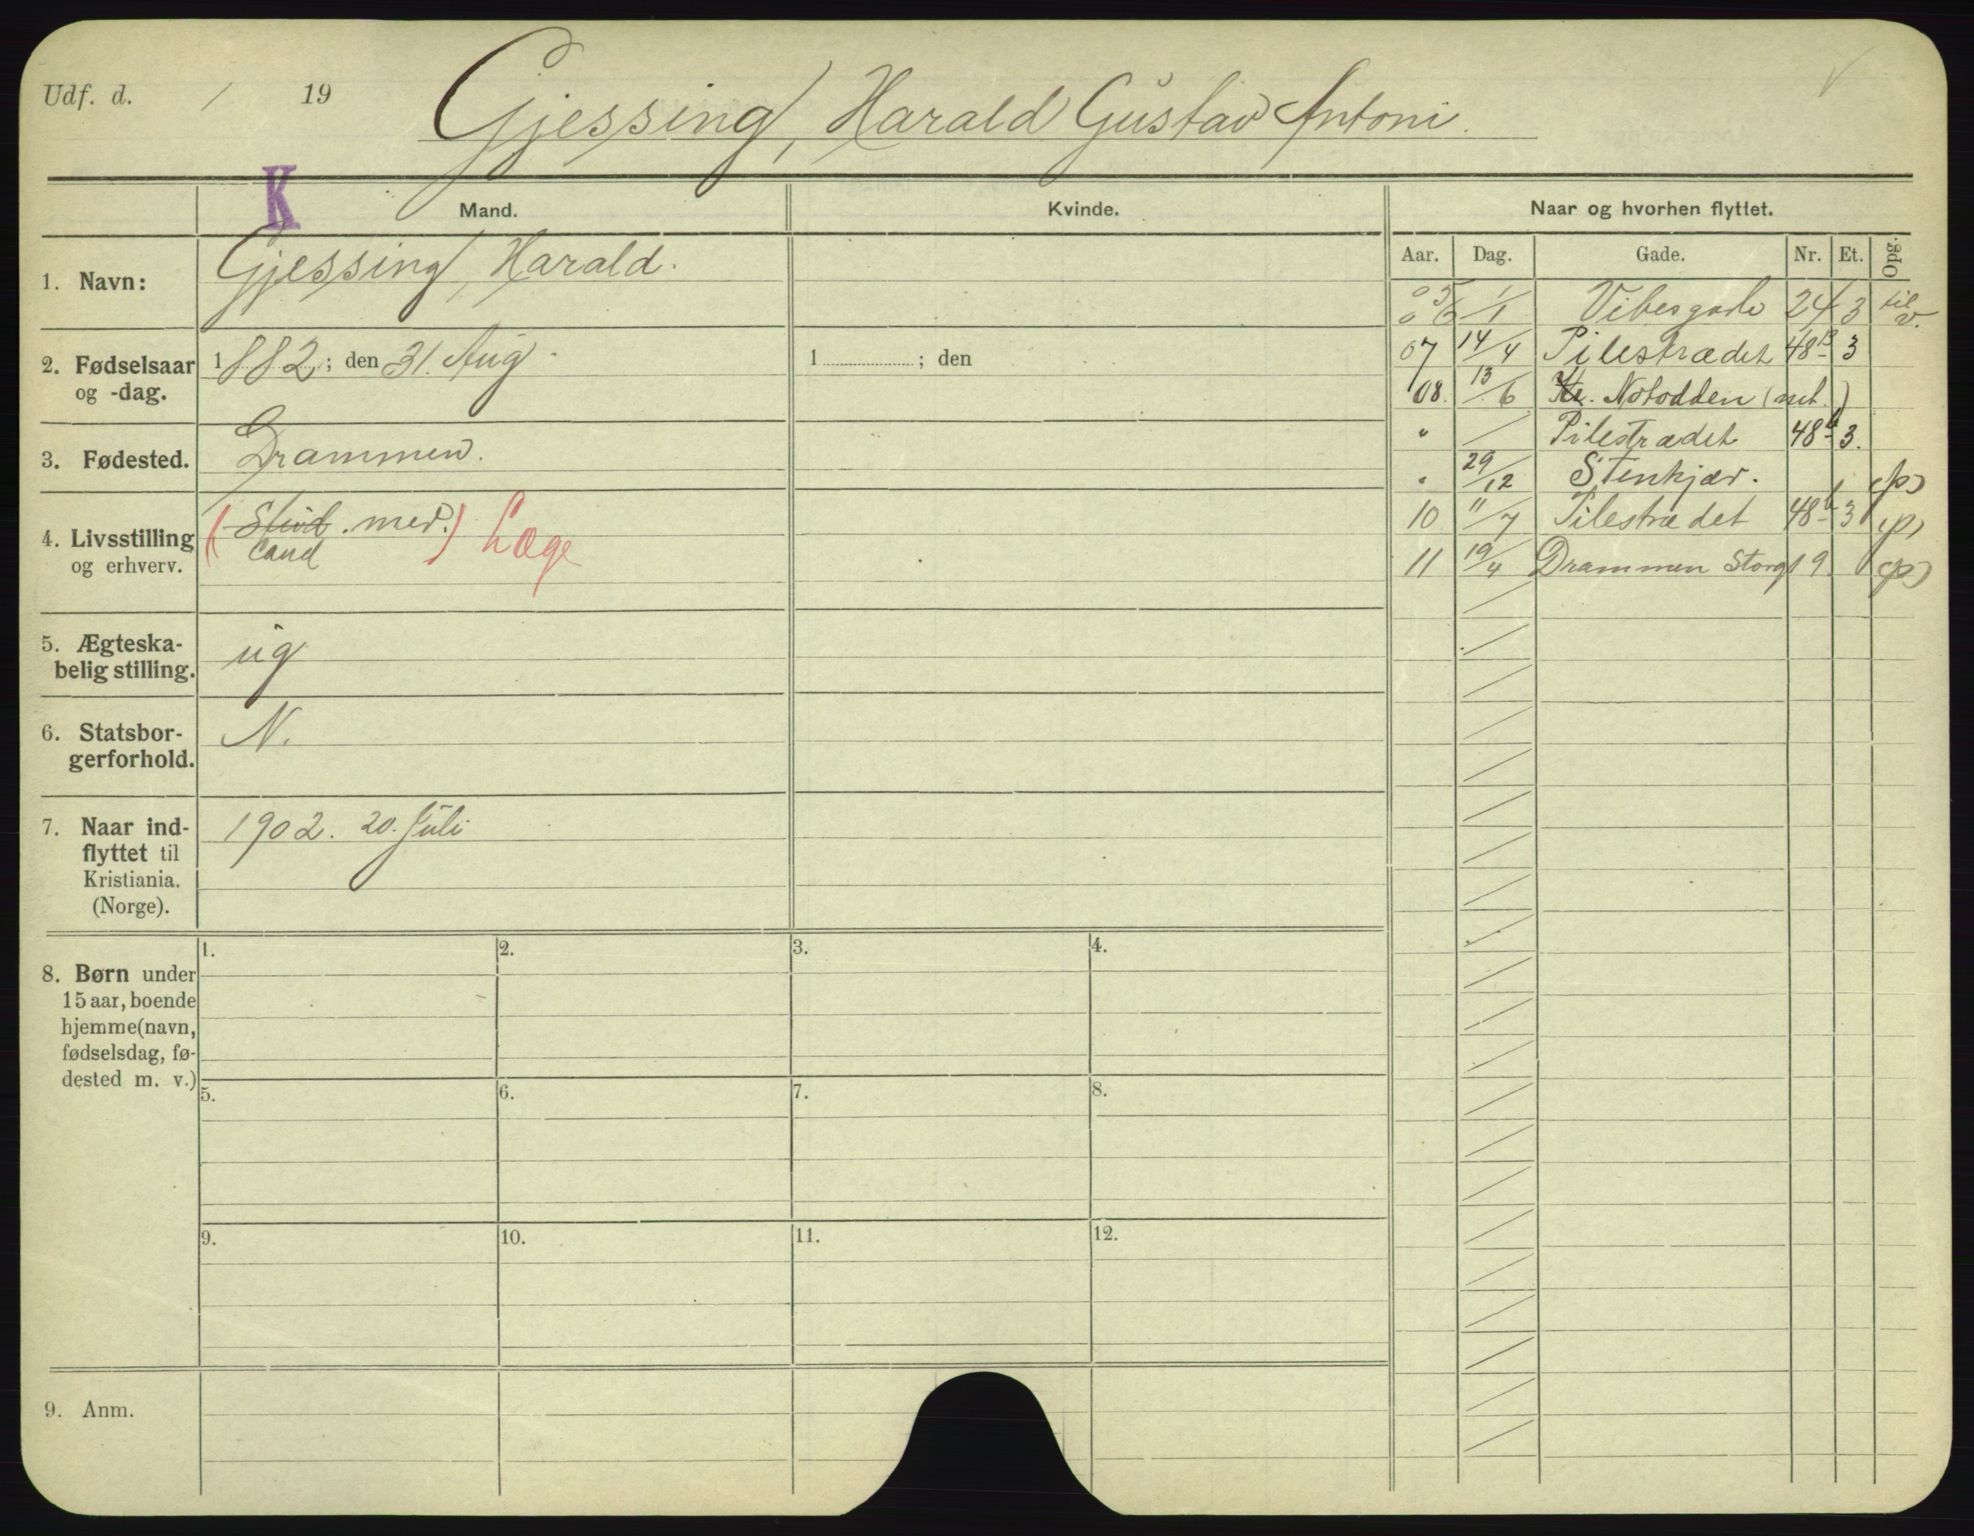 Udf. d. / 19 Gjessing, Harald Gustav Antoni.
K
Mand. Kvinde. Naar og hvorhen flyttet.
Aar. Dag. Gade. Nr. Et. Opg.
1. Navn: Gjessing, Harald.
2. Fødselsaar og -dag. 1882; den 31. Aug. 1 ; den
3. Fødested. Drammen.
4. Livsstilling og erhverv. (Stud. med.) Læge
cand
5. Ægteska-
belig stilling. ug
6. Statsbor-
gerforhold. N.
7. Naar ind-
flyttet til
Kristiania.
(Norge). 1902. 20. Juli
8. Børn under
15 aar, boende
hjemme (navn,
fødselsdag, fø-
dested m. v.)
1. 2. 3. 4.
5. 6. 7. 8.
9. 10. 11. 12.
9. Anm.
05
06 1/1 Vibesgade 24 3 til v.
07 14/4 Pilestrædet 48B 3
08. 13/6 Notodden
" / Pilestrædet 48b 3.
" 29/12 Stenkjær. (p)
10 11/7 Pilestrædet 48b 3 (p)
11 19/4 Drammen Storgt 9. (p)